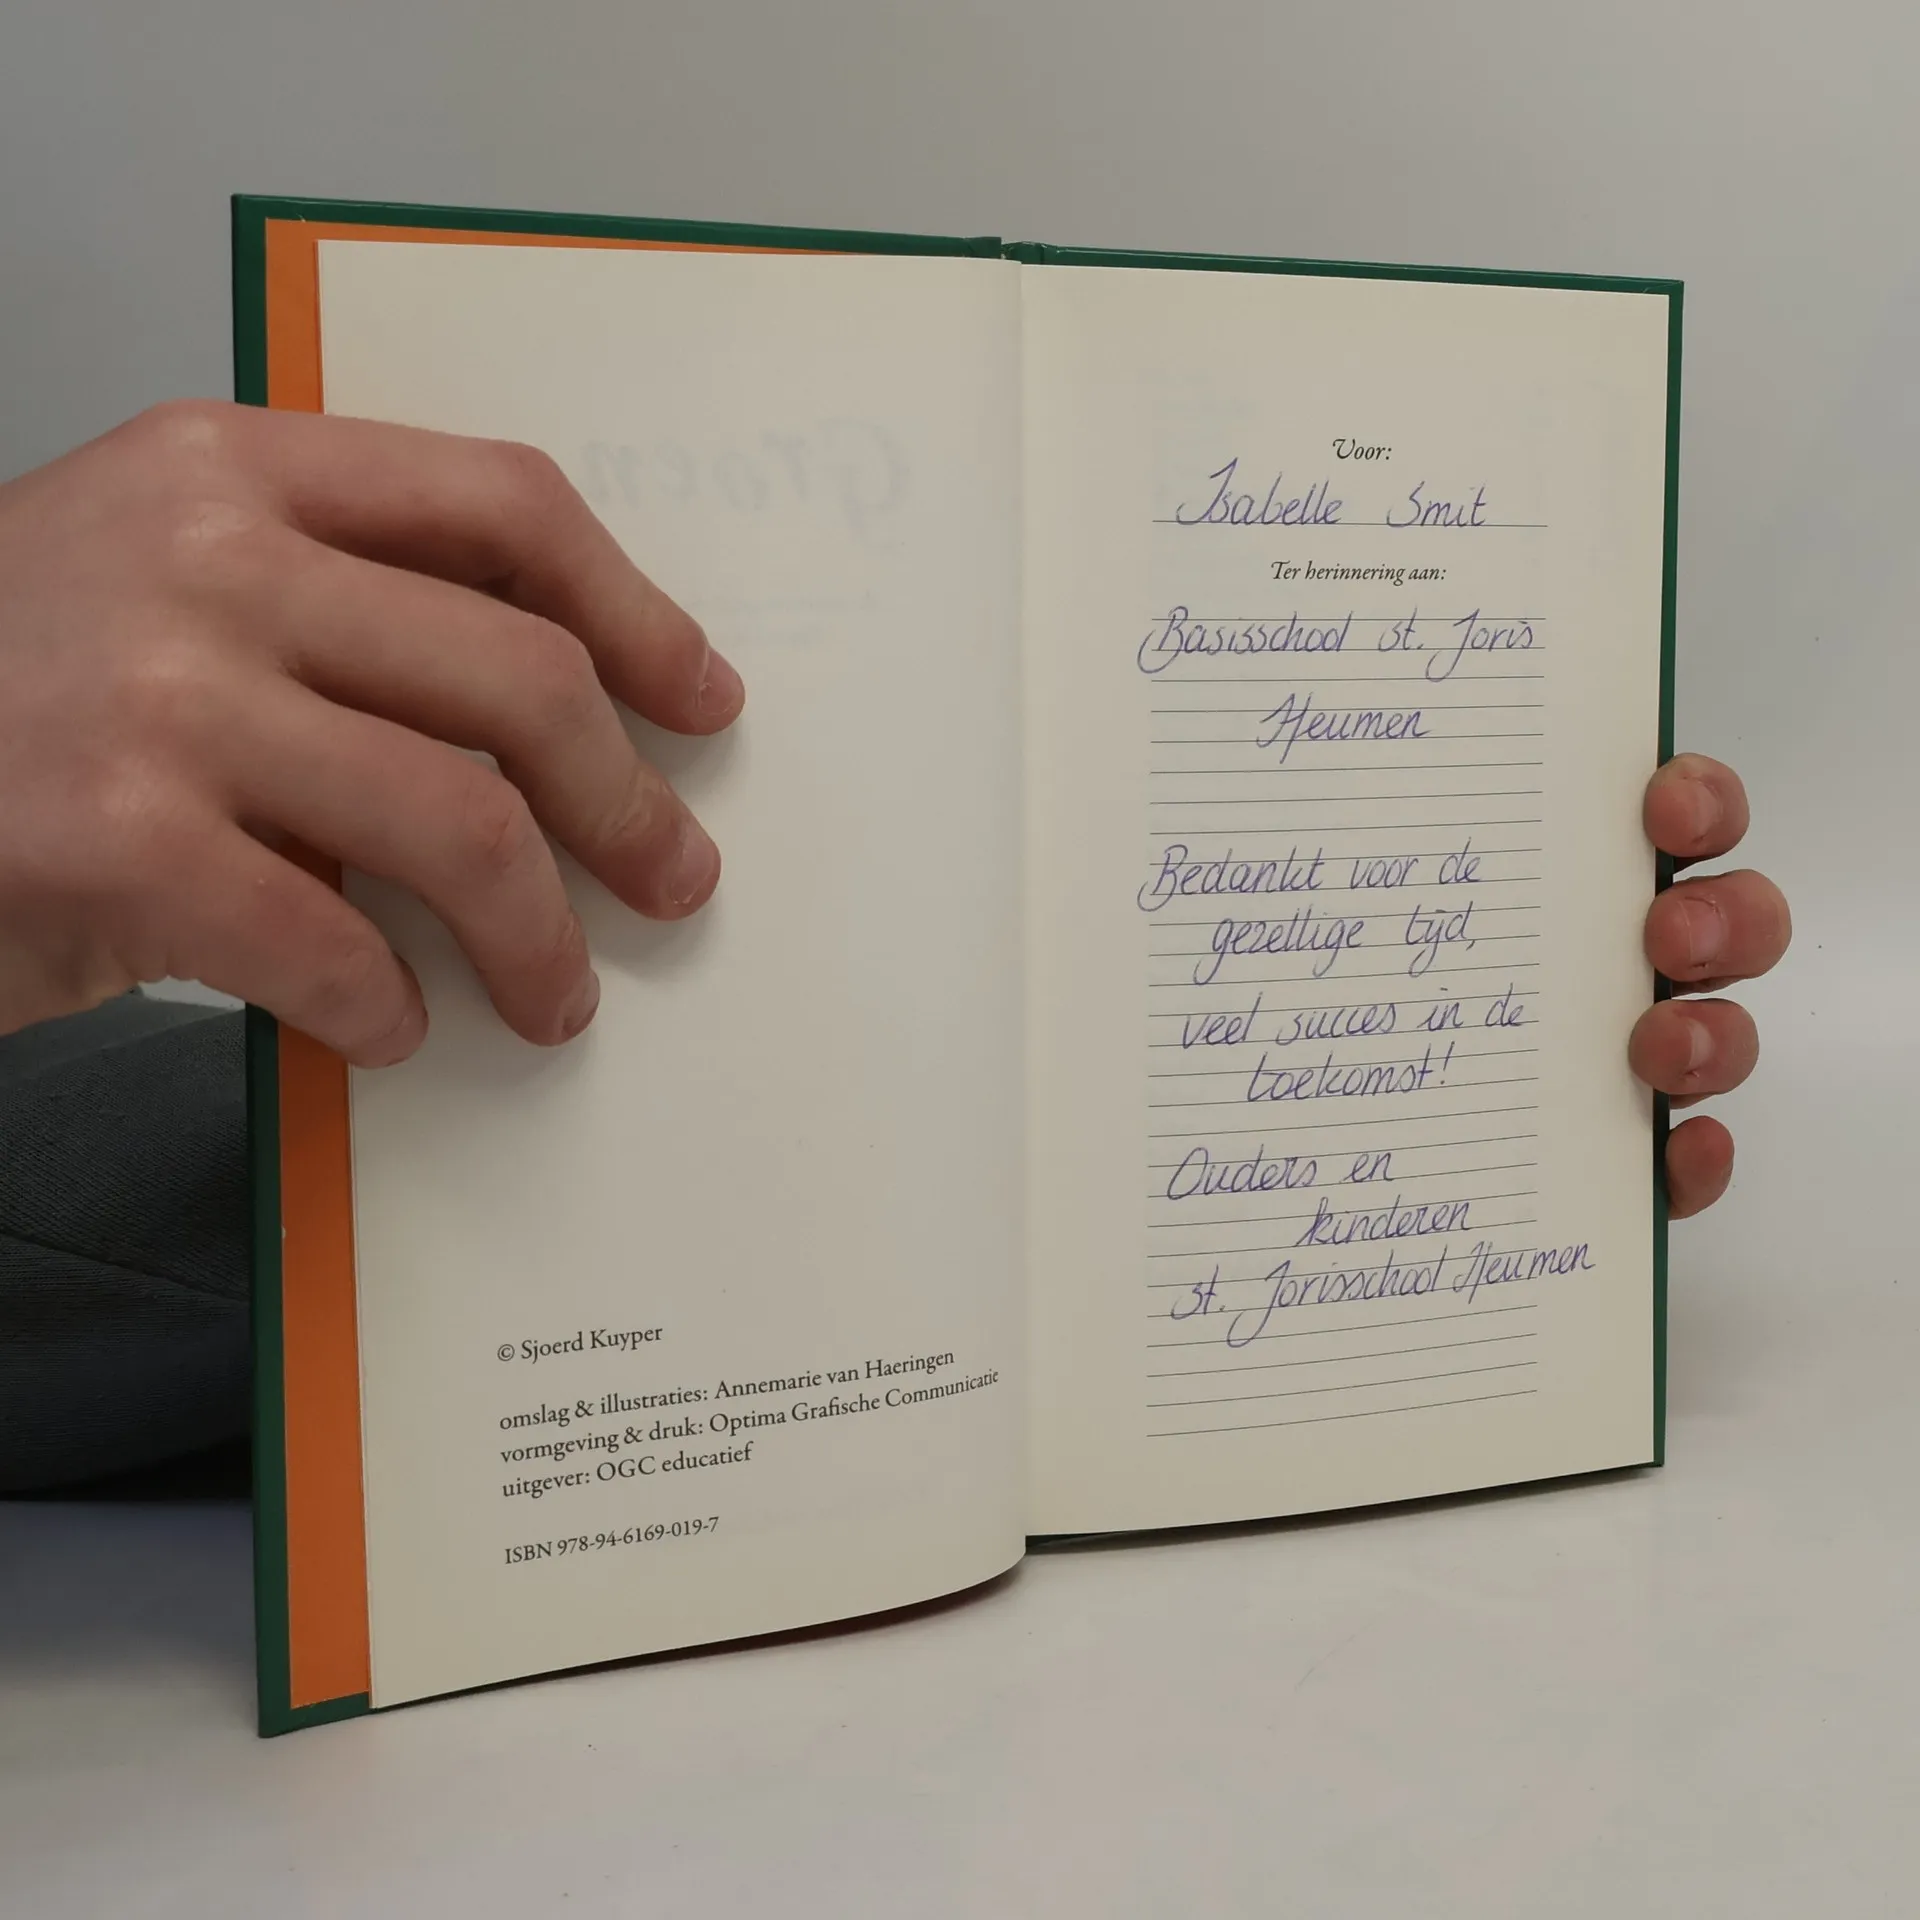 Groen
© Sjoerd Kuyper
omslag & illustraties: Annemarie van Haeringen
vormgeving & druk: Optima Grafische Communicatie
uitgever: OGC educatief
ISBN 978-94-6169-019-7
Voor:
Isabelle Smit
Ter herinnering aan:
Basisschool st. Joris
Heumen
Bedankt voor de
gezellige tijd,
veel succes in de
toekomst!
Ouders en
kinderen
st. Jorisschool Heumen